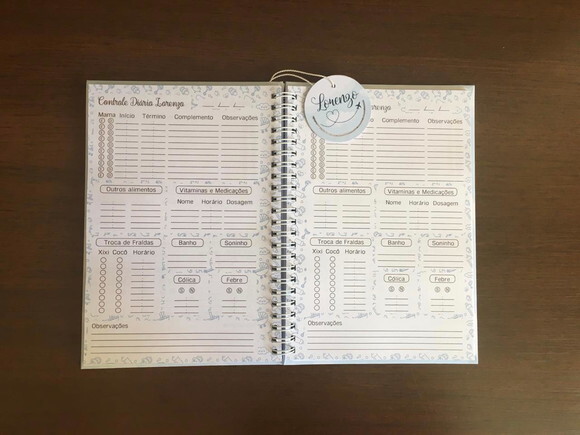 Controle Diário Lorenzo
Mama Início Término Complemento Observações
Outros alimentos Vitaminas e Medicações
Nome Horário Dosagem
Troca de Fraldas Banho Soninho
Xixi Cocô Horário
Cólica Febre
Observações
Lorenzo
Lorenzo
Complemento Observações
Outros alimentos Vitaminas e Medicações
Nome Horário Dosagem
Troca de Fraldas Banho Soninho
Xixi Cocô Horário
Cólica Febre
Observações